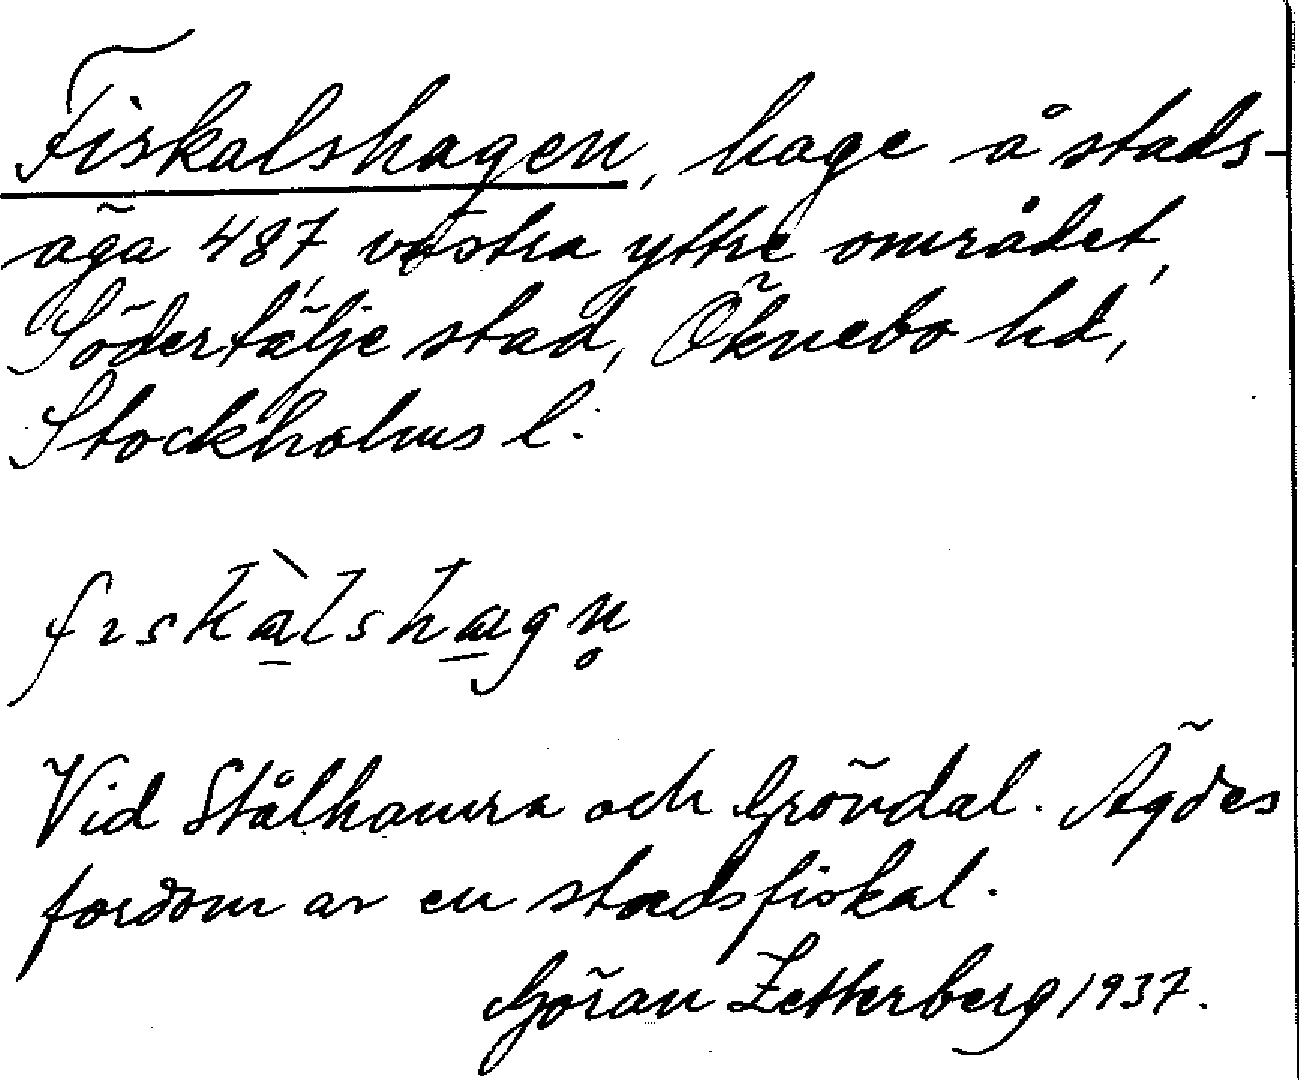 Fiskalshagen, hage å stads-
äga 487, västra yttre området,
Södertälje stad, Öknebo hd,
Stockholms l.
fɪskàlshagn̥
Vid Stålhamra och Gröndal. Ägdes
fordom av en stadsfiskal.
Göran Zetterberg 1937.